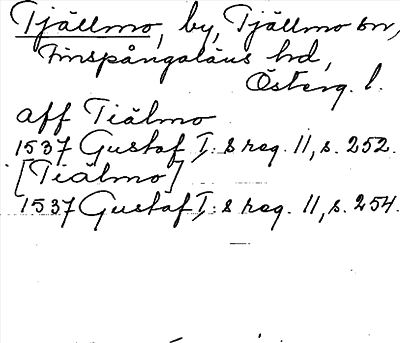 Tjällmo, by, Tjällmo sn,
Finspångaläns hd,
Österg. l.
aff Tiälmo
1537 Gustaf I:s reg. 11, s. 252.
[Tiälmo]
1537 Gustaf I:s reg. 11, s. 254.